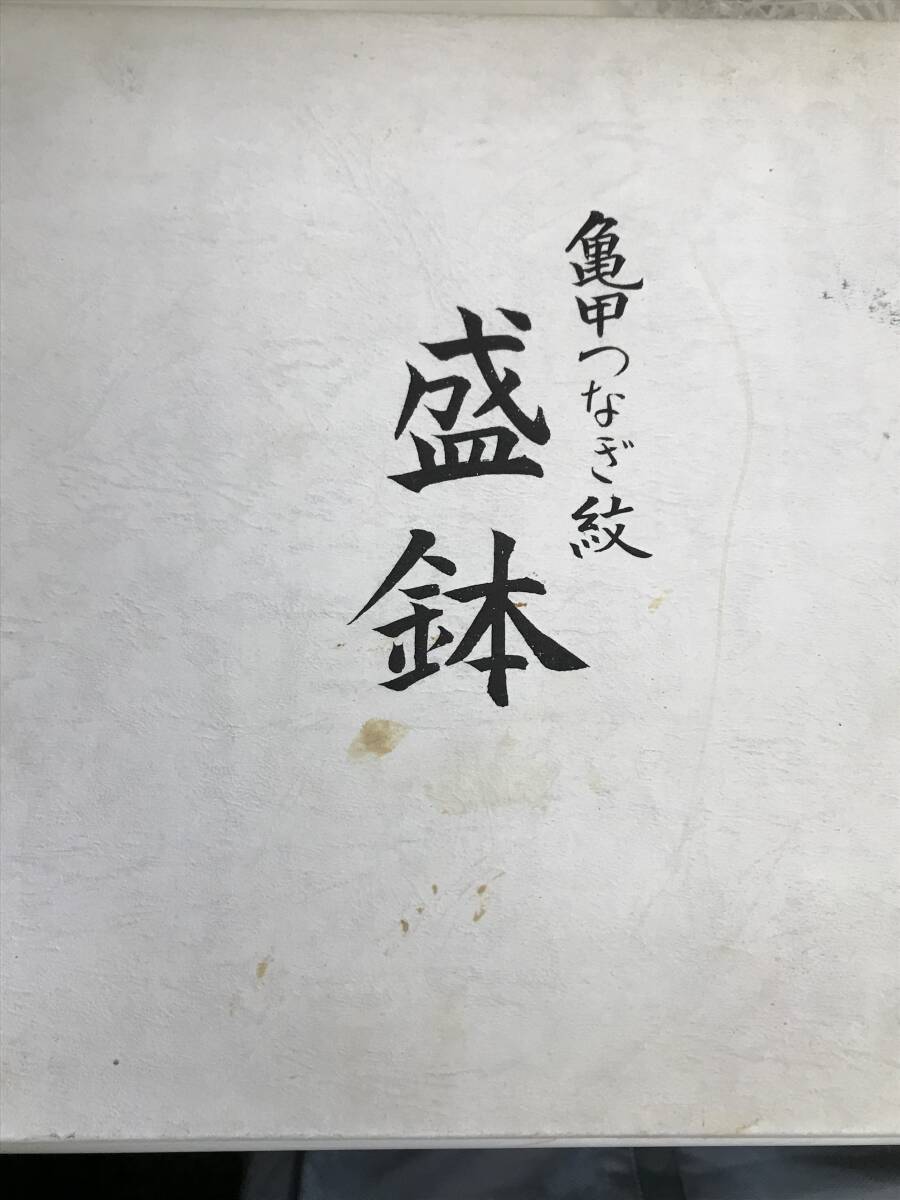 亀甲つなぎ紋
盛鉢